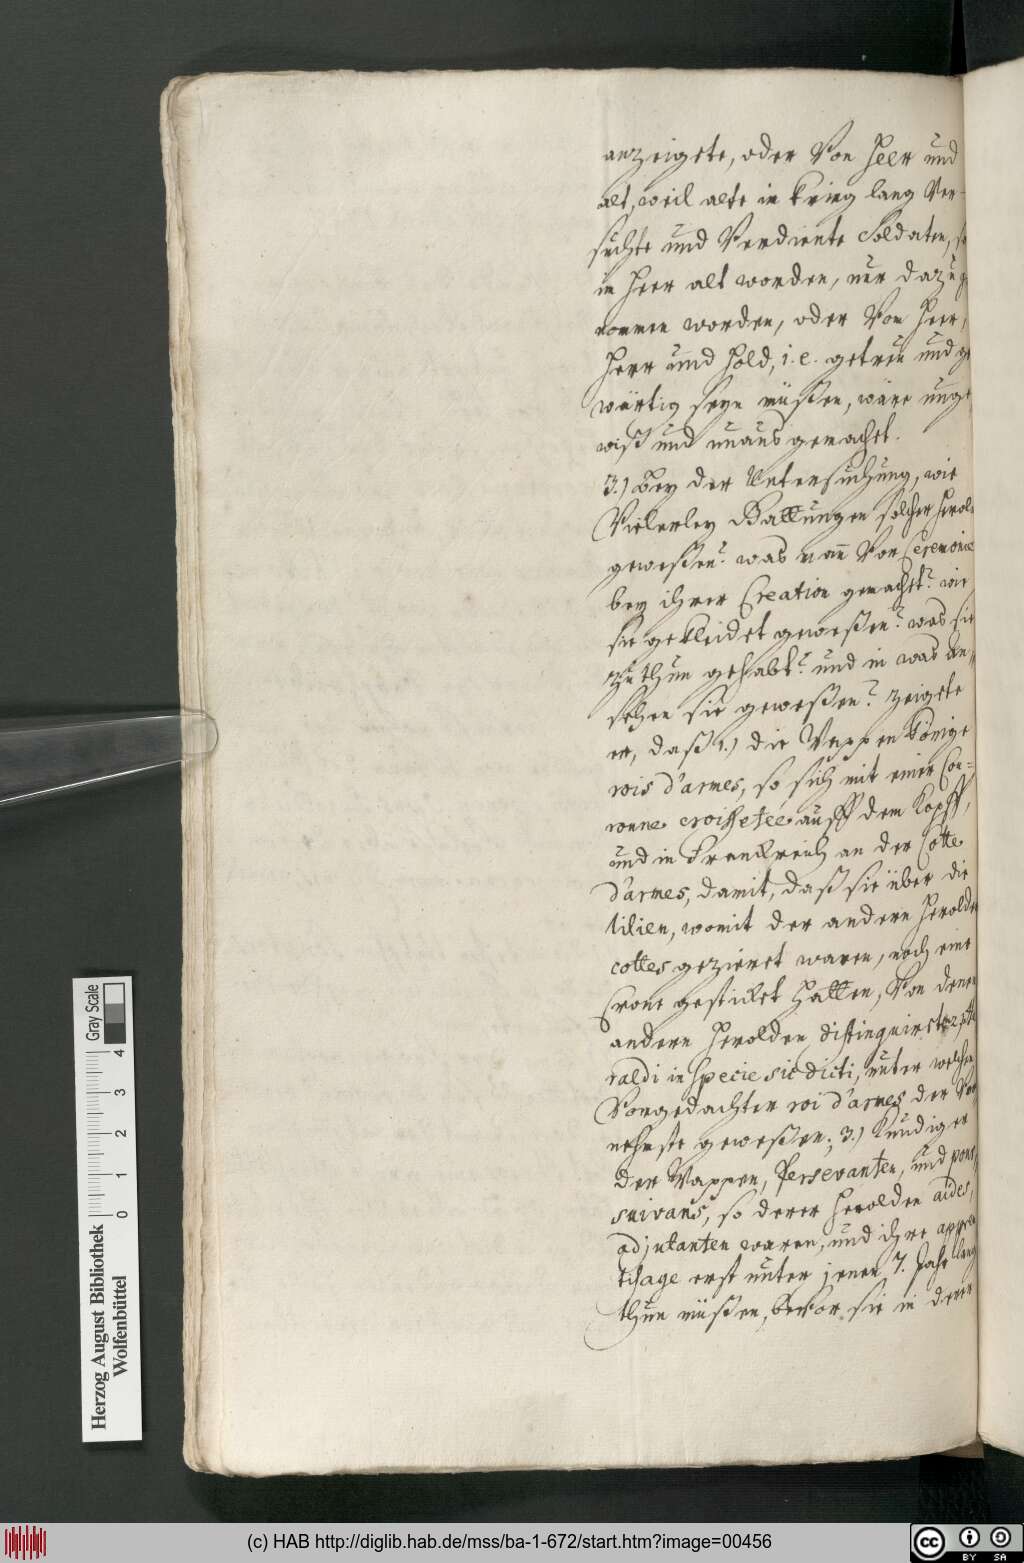 anzeigete, oder Von Heer und
alt, weil alte in Krieg lang Ver-
suchte und Verdiente Soldaten, so
in Heer alt worden, nur dazu
nommen worden, oder Von Heer,
Herr und Hold, i. e. getreu und ge
wärtig seyn müßen, wäre unge
wiß und unausgemachet.
3.) Bey der Untersuchung, wie
Vielerley Gattungen solcher Herol
geweßen? was man Vor Ceremonie
bey ihrer Creation gemachet? wie
sie gekleidet geweßen? was sie
zu thun gehabt? und in was An-
sehen sie geweßen? zeigete
er, daß 1.) die Wappen Könige
rois d'armes, so sich mit einer Cou-
ronne croissetee auff dem Kopff,
und in Franckreich an der Cotte
d'armes, damit, daß sie über die
lilien, womit der andern Herolde
cottes gezieret waren, noch eine
Crone gesticket hatten, Von denen
andern Herolden distinguiret
raldi in specie sic dicti, unter welchen
Vorgedachter roi d'armes der Vor
nehmste geweßen; 3.) Kundiger
der Wappen, Persevanten, und pour
suivans, so derer Herolden aides,
adjutanten waren, und ihre appren
tisage erst unter jenen 7. Jahr lang
thun müßen, bevor sie in deren
Herzog August Bibliothek
Wolfenbüttel
0 1 2 3 4
Gray Scale
(c) HAB http://diglib.hab.de/mss/ba-1-672/start.htm?image=00456
cc BY SA